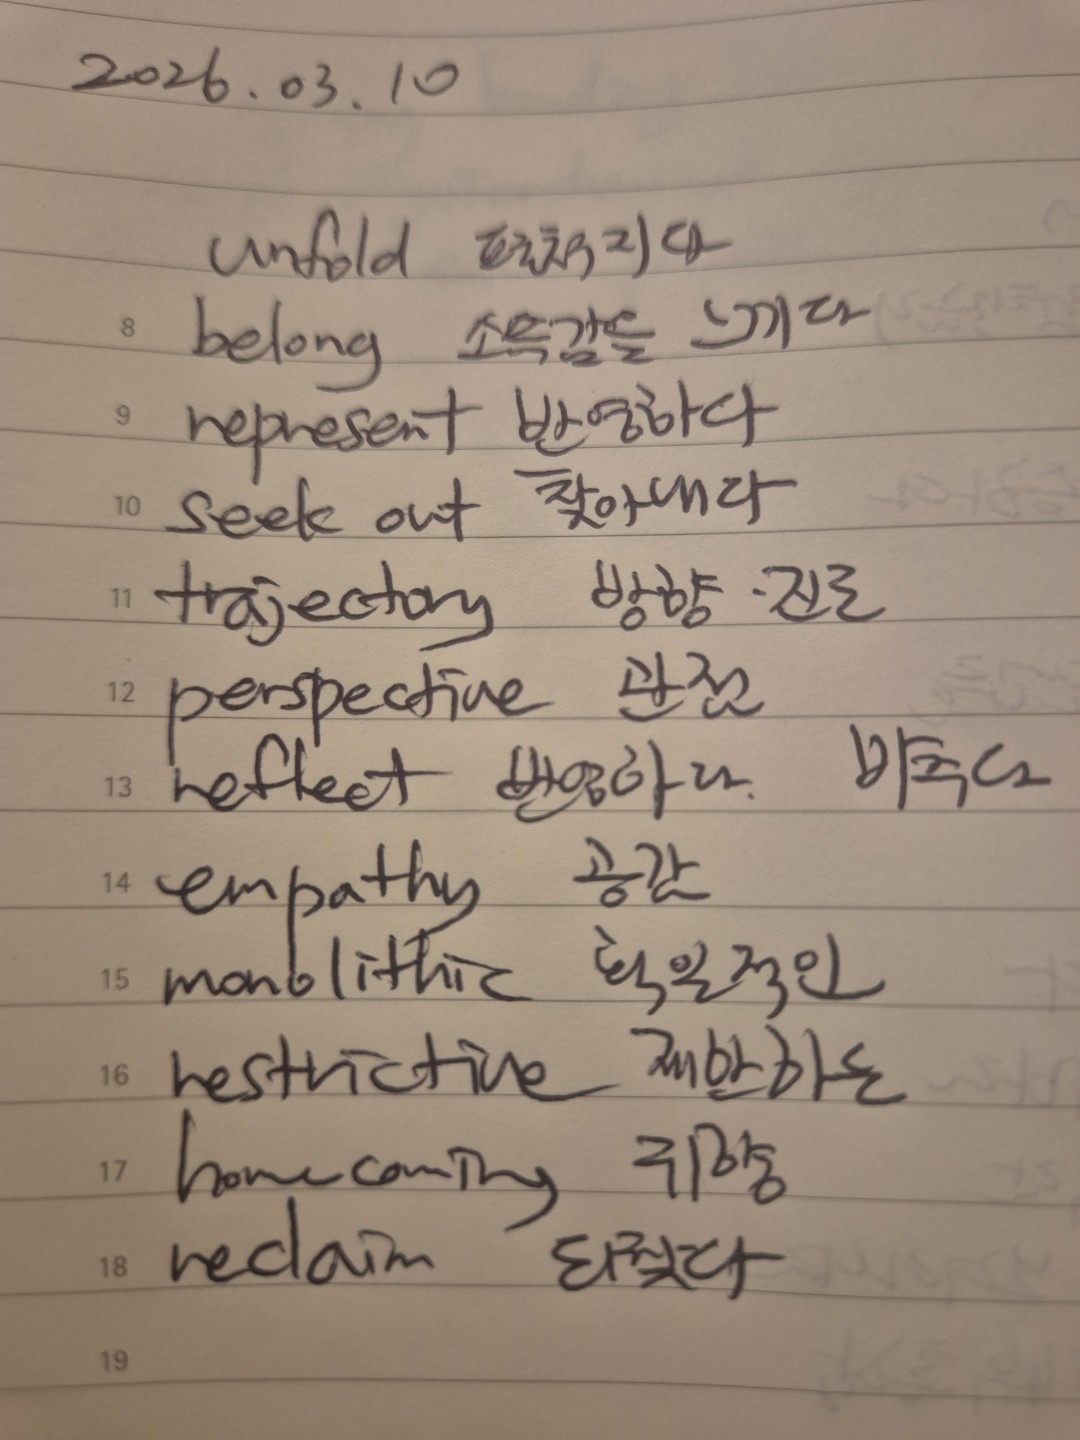 2026.03.10
unfold 펼쳐지다
8 belong 소속감을 느끼다
9 represent 반영하다
10 seek out 찾아내다
11 trajectory 방향·진로
12 perspective 관점
13 reflect 반영하다. 비추다
14 empathy 공감
15 monolithic 획일적인
16 restrictive 제한하는
17 homecoming 귀향
18 reclaim 되찾다
19